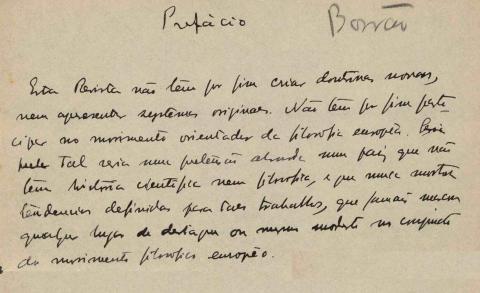 Prefácio
Borrão
Esta Revista não têm por fim criar doutrinas novas,
nem apresentar systemas originaes. Não têm por fim parti
cipar no movimento orientador da filosofia européa.
tal seria uma pretensão absurda num paiz que não
têm história científica nem filosófica, e que nunca mostrou
tendencias definidas para taes trabalhos, que jamais mereceu
qualquer lugar de destaque ou mesmo modesto no conjuncto
do movimento filosófico européo.